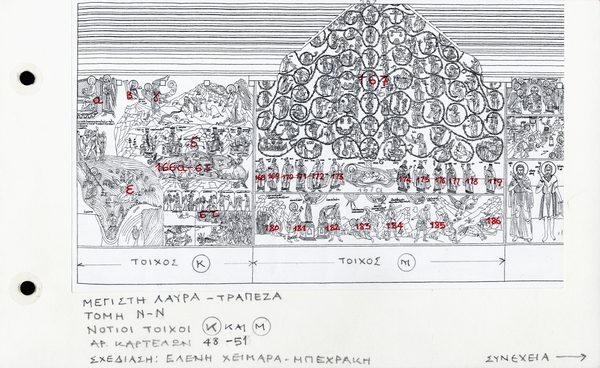 167
α β γ
δ
166α-στ
ε
στ
168 169 170 171 172 173 174 175 176 177 178 179
180 181 182 183 184 185 186
ΤΟΙΧΟΣ Κ ΤΟΙΧΟΣ Μ
ΜΕΓΙΣΤΗ ΛΑΥΡΑ - ΤΡΑΠΕΖΑ
ΤΟΜΗ Ν-Ν
ΝΟΤΙΟΙ ΤΟΙΧΟΙ Κ ΚΑΙ Μ
ΑΡ. ΚΑΡΤΕΛΩΝ 48-51
ΣΧΕΔΙΑΣΗ: ΕΛΕΝΗ ΧΕΙΜΑΡΑ-ΜΠΕΧΡΑΚΗ
ΣΥΝΕΧΕΙΑ →